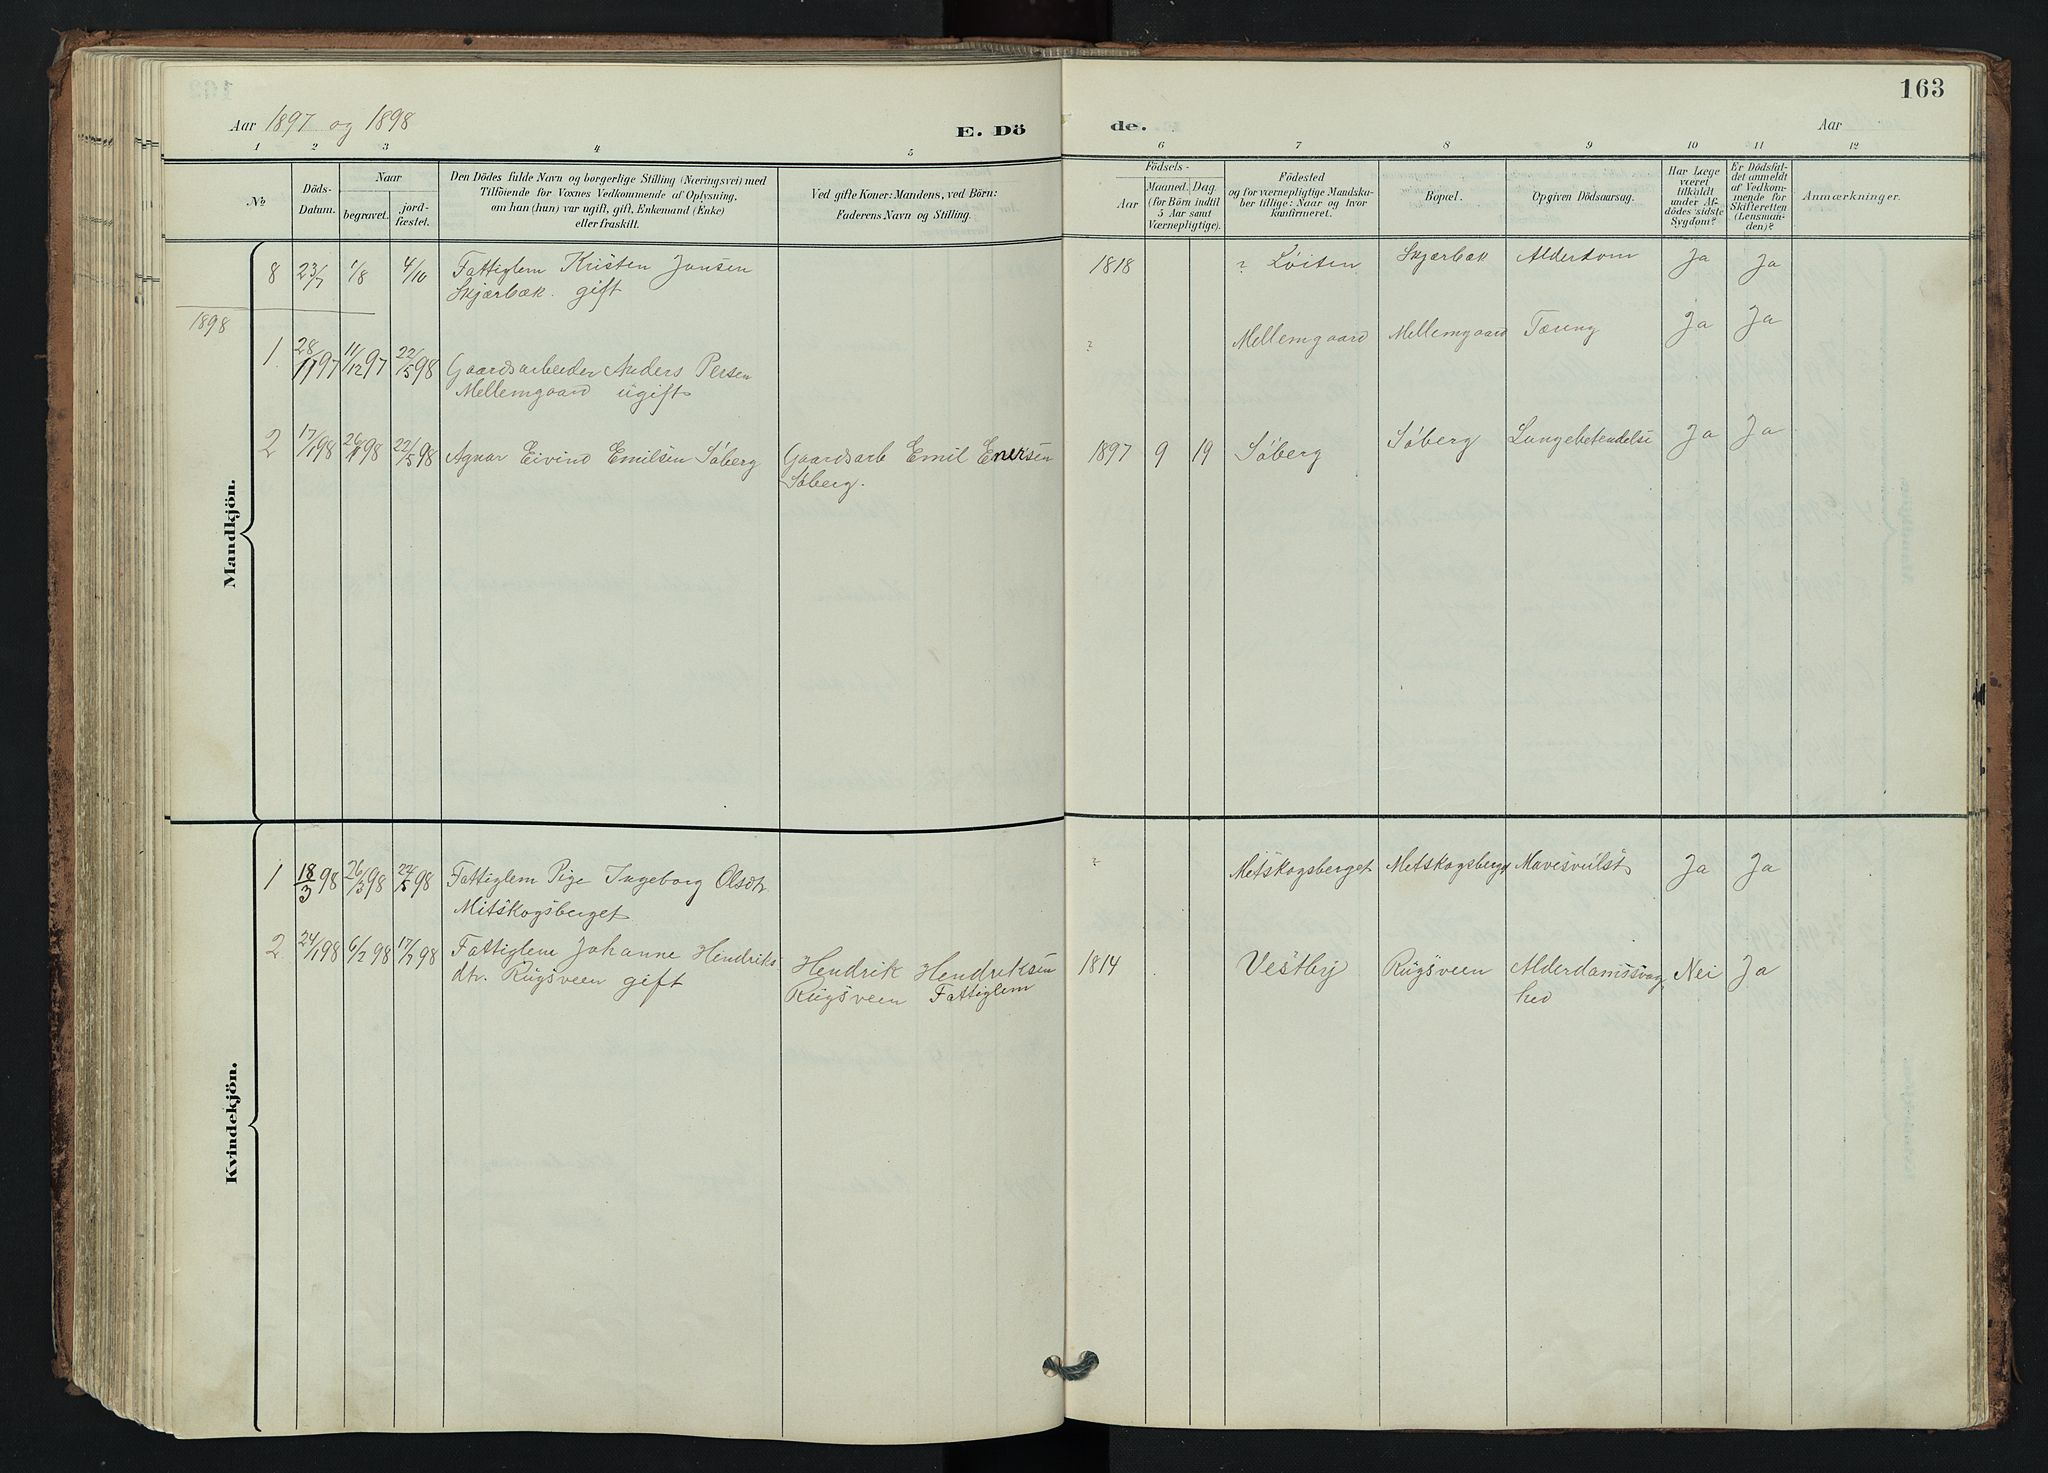 163
Aar 1897 og 1898
E. Döde.
Aar
1 2 3 4 5 6 7 8 9 10 11 12
№
Döds-
Datum.
Naar
begravet.
jord-
fæstet.
Den Dödes fulde Navn og borgerlige Stilling (Næringsvei) med
Tilföiende for Voxnes Vedkommende af Oplysning,
om han (hun) var ugift, gift, Enkemand (Enke)
eller fraskilt.
Ved gifte Koner: Mandens, ved Börn:
Faderens Navn og Stilling.
Födsels-
Aar
Maaned. Dag.
(for Börn indtil
5 Aar samt
Værnepligtige).
Födested
og for værnepligtige Mandska-
ber tillige: Naar og hvor
konfirmeret.
Bopæl.
Opgiven Dödsaarsag.
Har Læge
været
tilkaldt
under Af-
dödes sidste
Sygdom?
Er Dödsfal-
det anmeldt
af Vedkom-
mende for
Skifteretten
(Lensman-
den)?
Anmærkninger.
Mandkjön.
8 23/7 1/8 4/10 Fattiglem Kristen Jansen 1818 ? Löiten Skjærbæk Alderdom Ja Ja
Skjærbæk. gift
1898
1 28/11 97 11/12 97 22/5 98 Gaardsarbeider Anders Persen ? Mellemgaard Mellemgaard Tæring Ja Ja
Mellemgaard ugift
2 17/1 98 26/1 98 22/5 98 Agnar Eivind Emilsen Söberg Gaardsarb Emil Enersen 1897 9 19 Söberg Söberg Lungebetendelse Ja Ja
Söberg.
Kvindekjön.
1 18/3 98 26/3 98 22/5 98 Fattiglem Pige Ingeborg Olsdtr. ? Mitskogsberget Mitskogsberget Mavesvulst Ja Ja
Mitskogsberget
2 24/1 98 6/2 98 17/7 98 Fattiglem Johanne Hendriks Hendrik Hendriksen 1814 Vestby Rügsveen Alderdamssvag Nei Ja
dtr. Rügsveen gift Rügsveen Fattiglem hed